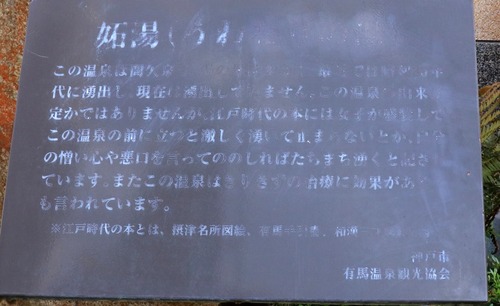 妬湯(うわ
この温泉は間欠泉
代に湧出し、現在は湧出していません。この温泉の由来
定かではありませんが、江戸時代の本には女子が盛装して
この温泉の前に立つと激しく湧いて止まらないとか、
の憎い心や悪口を言ってののしればたちまち湧くと記さ
ています。またこの温泉はきりきずの治療に効果があ
も言われています。
※江戸時代の本とは、摂津名所図絵、
神戸市
有馬温泉観光協会